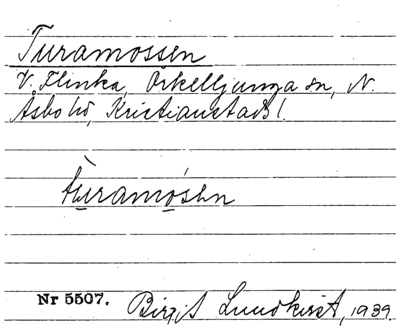 Turamossen
V. Flinka, Örkelljunga sn, N.
Åsbo hd, Kristianstads l.
tu̲ramo̲´sɘn
Nr 5507. Birgit Lundkvist, 1939.